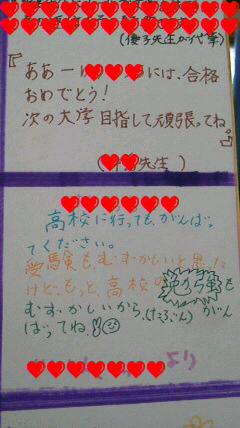 (優子先生が代筆)
『ああー には、合格
おめでとう！
次の大学目指して頑張ってね。
』
( 先生)
高校に行っても、がんば。
てください。
受験も、むずかしいと思った
けど、もっと、高校の勉強も
むずかしいから、(たぶん) がん
ばってね。
より